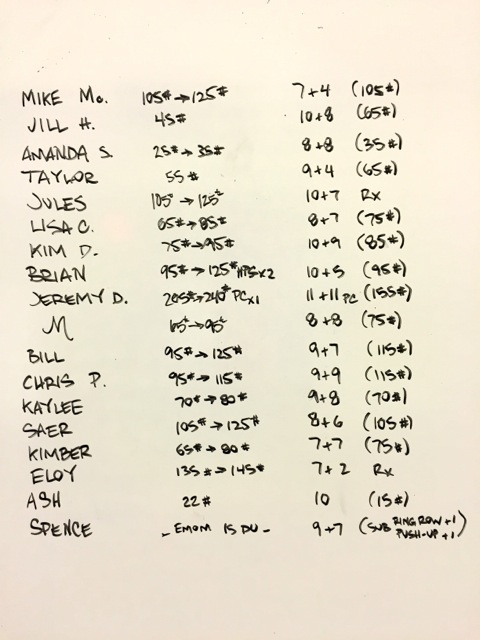 MIKE Mc. 105# → 125# 7+4 (105#)
JILL H. 45# 10+8 (65#)
AMANDA S. 25# → 35# 8+8 (35#)
TAYLOR 55# 9+4 (65#)
JULES 105# → 125# 10+7 Rx
LISA C. 65# → 85# 8+7 (75#)
KIM D. 75# → 95# 10+9 (85#)
BRIAN 95# → 125# HPS x2 10+5 (95#)
JEREMY D. 205# → 240# PC x1 11+11 PC (155#)
M 65# → 95# 8+8 (75#)
BILL 95# → 125# 9+7 (115#)
CHRIS P. 95# → 115# 9+9 (115#)
KAYLEE 70# → 80# 9+8 (70#)
SAER 105# → 125# 8+6 (105#)
KIMBER 65# → 80# 7+7 (75#)
ELOY 135# → 145# 7+2 Rx
ASH 22# 10 (15#)
SPENCE - EMOM 15 DU - 9+7 (SUB RING ROW +1
PUSH-UP +1)